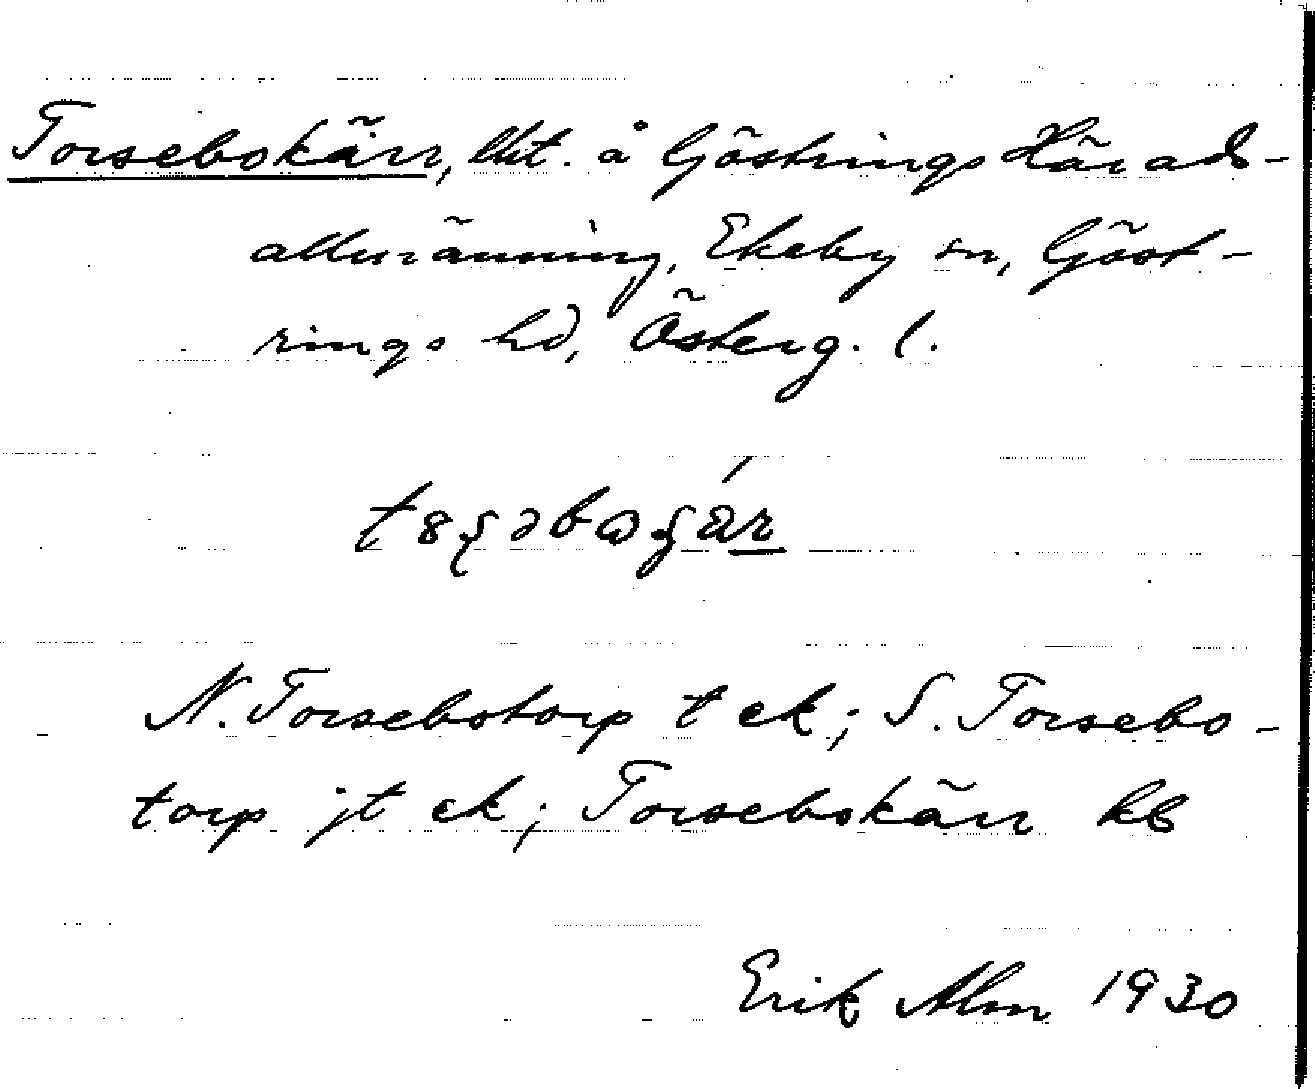 Torsebokärr, lht. å Göstrings Härads-
allmänning, Ekeby sn, Göst-
rings hd, Österg. l.
N. Torsebotorp t ek; S. Torsebo-
torp jt ek; Torsebokärr kb
Erik Alm 1930